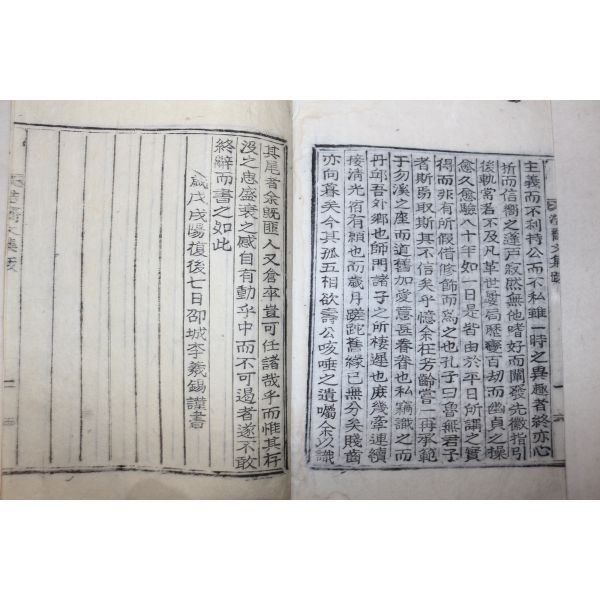 主義而不利持公而不私雖一時之異趣者終亦心
折而信嚮之蓬戶寂然無他嗜好而闡發先徽指引
後軌常若不及凡革世屢局歷變百劫而幽貞之操
愈久愈驗八十年如一日是皆由於平日所講之實
得而非有所假借修飾而爲之也孔子曰魯無君子
者斯焉取斯其不信矣乎憶余在芳齡嘗一再承範
于勿溪之座而道舊加愛意甚眷眷也私竊識之而
丹邱吾外鄉也師門諸子之所棲遲也庶幾牽連續
接淸光宿有願也而歲月蹉跎舊緣已無分矣賤齒
亦向暮矣今其孤五相欲壽公咳唾之遺囑余以識
其尾者余旣匪人又倉卒豈可任諸哉乎而惟其杅
沒之思盛衰之感自有動乎中而不可遏者遂不敢
終辭而書之如此
歲戊戌陽復後七日邵城李義錫謹書